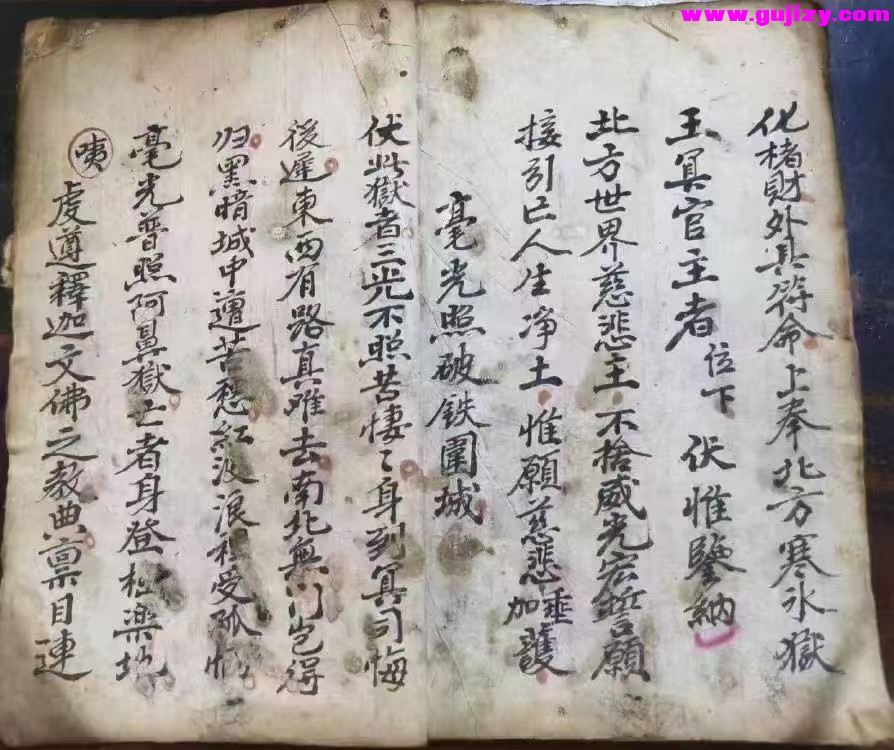 www.gujizy.com
化楮財外具符命上奉北方寒氷獄
王冥官主者位下 伏惟鑒納
北方世界慈悲主不捨威光宏誓願
接引亡人生净土惟願慈悲垂加護
毫光照破铁圍城
伏此獄者三光不照苦悽〻身到冥司悔
後遲東西有路真难去南北無门岂得
归黑暗城中遭苦愁紅波浪裡受孤恓
毫光普照阿鼻獄亡者身登極楽地
咦 虔遵釋迦文佛之教典禀目連